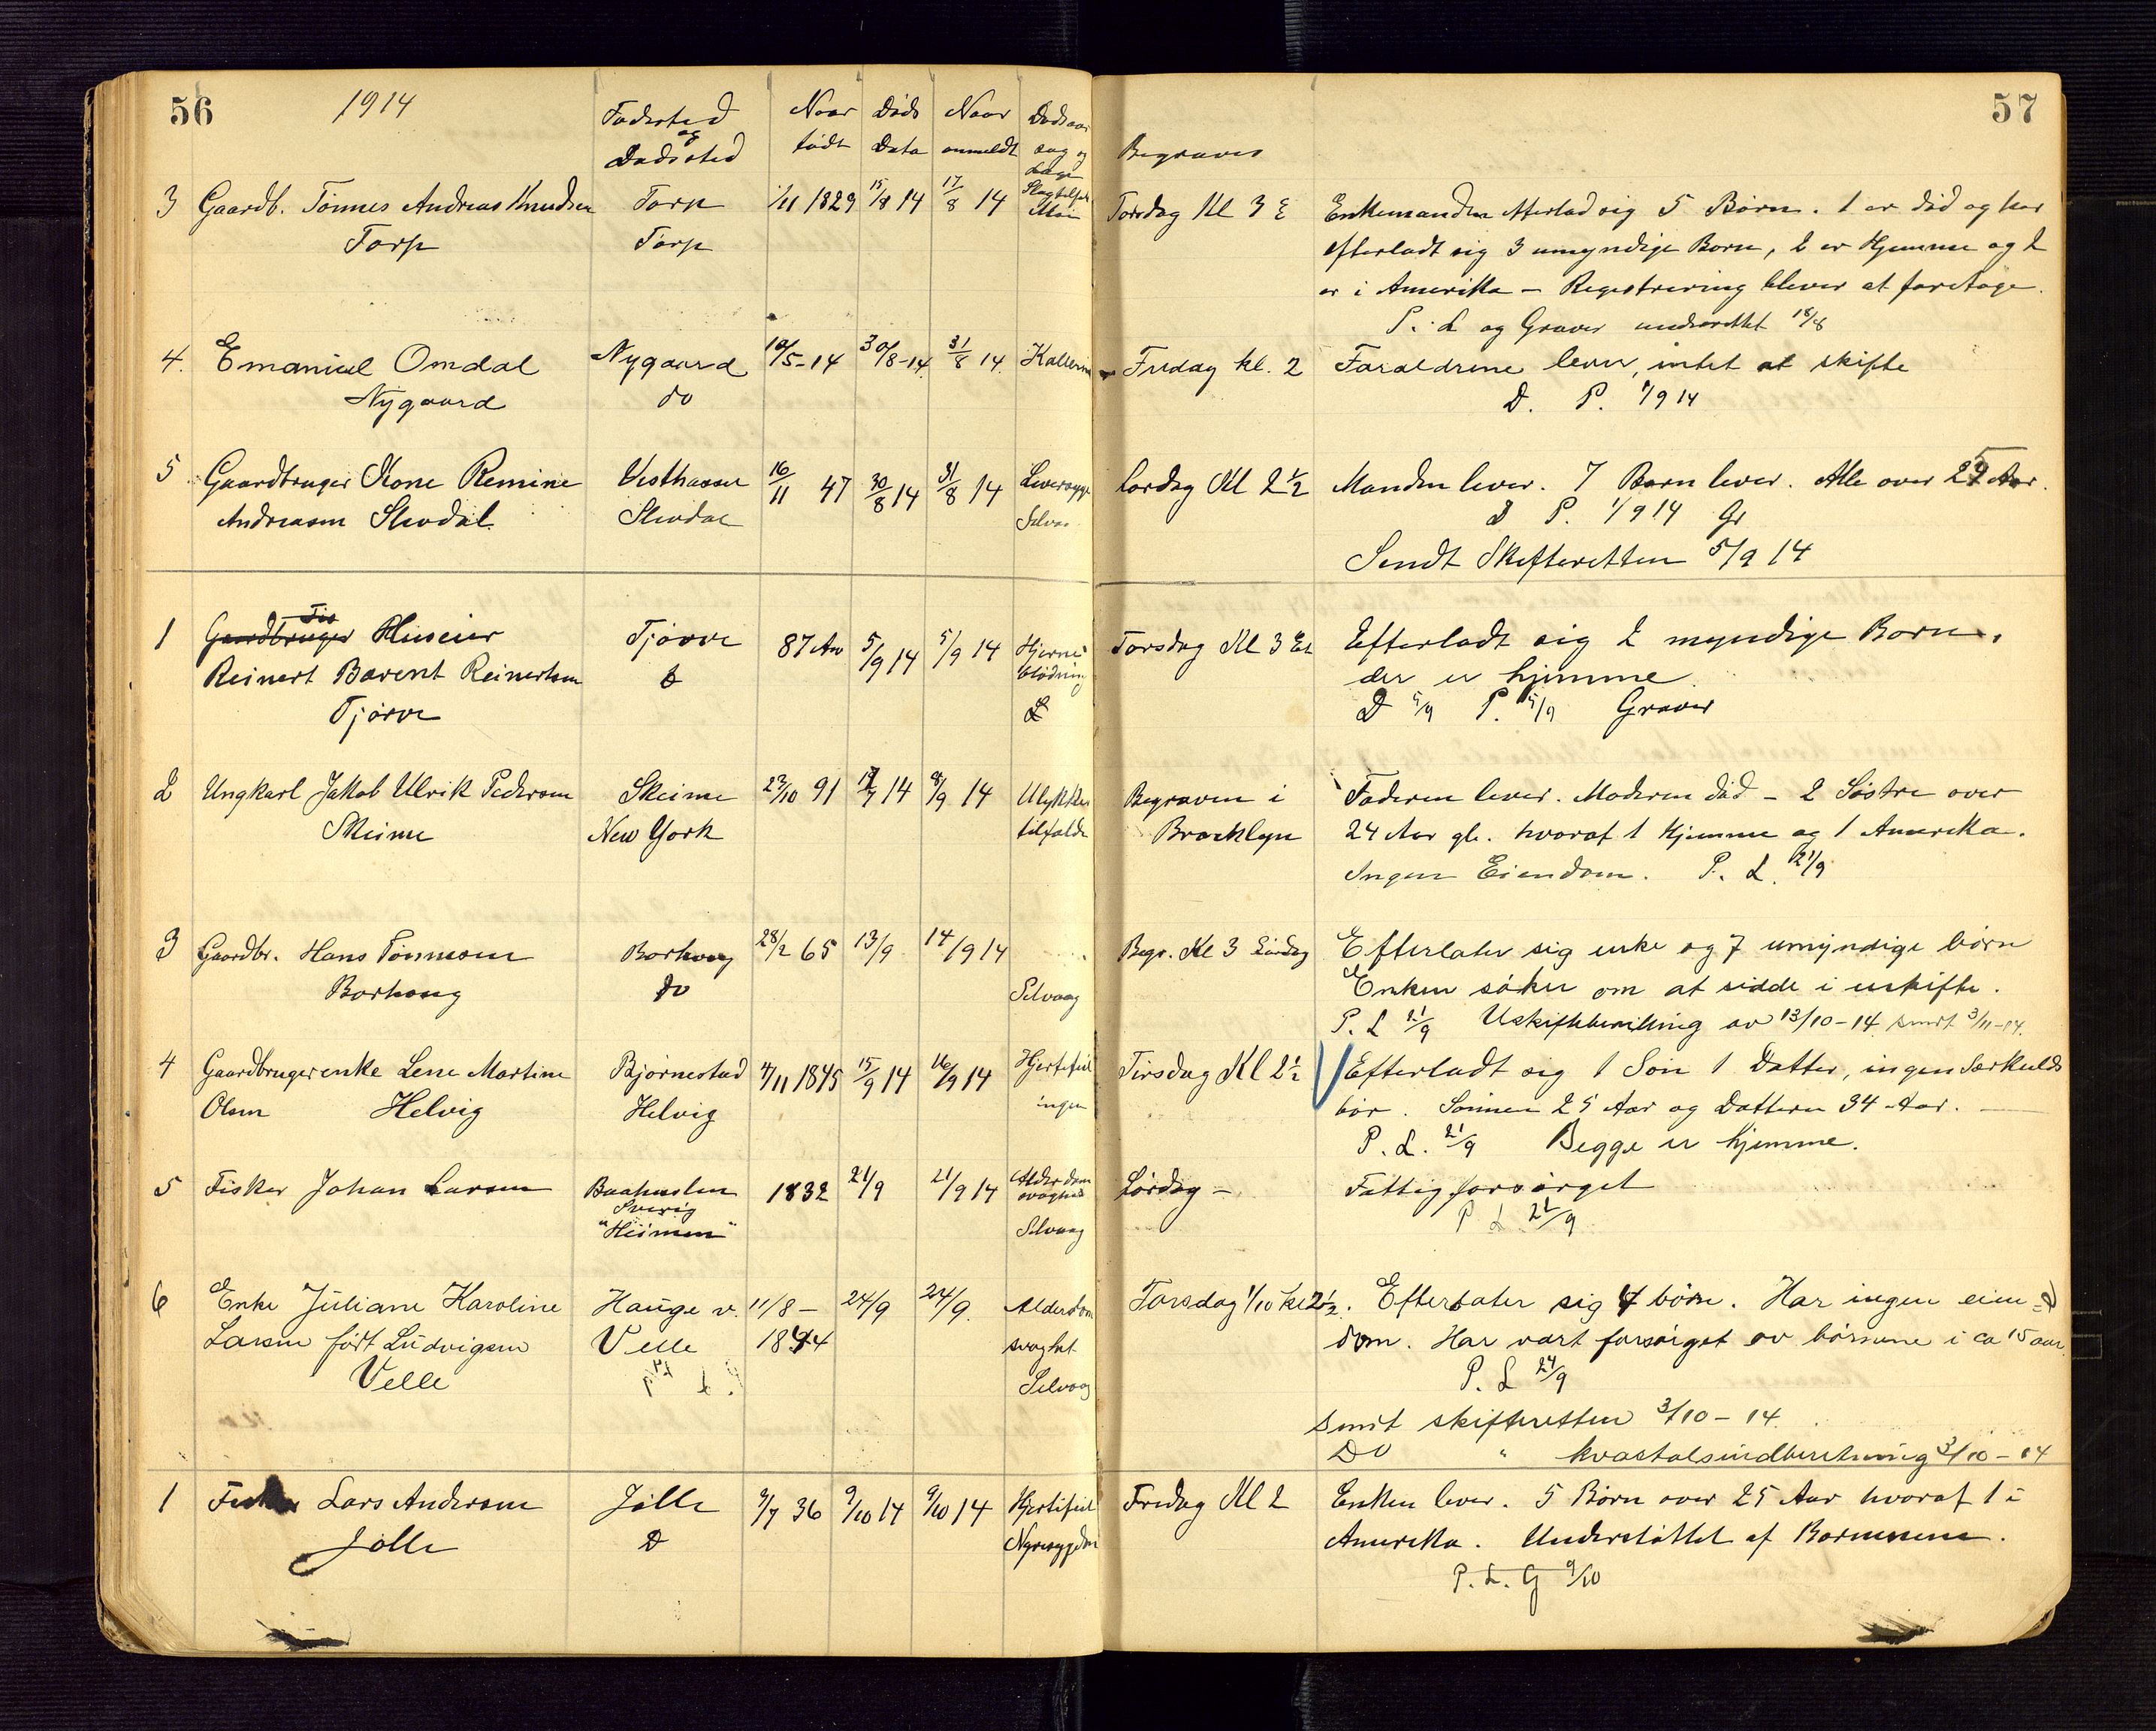 56
1914
Fødested
og
Dødssted
Naar
født
Døds
Dato
Naar
anmeldt
Dødsaar
sag og
Læge
3 Gaardb. Tønnes Andreas Knudsen
Torp
Torp
Torp
1/11 1829
15/8 14
17/8 14
4. Emanuel Omdal
Nygaard
Nygaard
do
10/5-14
30/8-14
31/8 14
5 Gaardbruger Kone Remine
Andreasen Skodal
Vesthassel
Skodal
16/11 47
30/8 14
31/8 14
Leversyge
Selvaa
1 Gaardbruger Fis Huseier
Reinert Barent Reinertsen
Tjørve
Tjørve
87 Aar
5/9 14
5/9 14
Hjerne
blødning
L
2 Ungkarl Jakob Ulrik Pedersen
Skeime
Skeime
New York
23/10 91
14
8/9 14
Ulykkes
tilfælde
3 Gaardbr. Hans Tønnesen
Borhaug
Borhaug
do
28/2 65
13/9
14/9 14
Selvaag
4 Gaardbrugerenke Lene Martine
Olsen Helvig
Bjørnestad
Helvig
4/11 1845
15/9 14
16/9 14
Hjertefeil
ingen
5 Fisker Johan Larsen
Baahuslen
Sverig
"Heimen"
1832
21/9
21/9 14
Alderdom
svaghed
Selvaag
6 Enke Juliane Karoline
Larsen født Ludvigsen
Velle
Hauge v.
Velle
11/8 -
1844
24/9
24/9.
Alderdom
svaghet
Selvaag
1 Fisker Lars Andersen
Jølle
Jølle
D
9/7 36
9/10 14
9/10 14
Hjertefeil
Nyresygdom
57
Begraves
Torsdag Kl 3 E
Enkemanden Efterlod sig 5 Børn. 1 er død og har
efterladt sig 3 umyndige Børn, 2 er Hjemme og 2
er i Amerika - Registrering blever at foretage.
P. L og Graver underrettet 18/8
Fredag kl. 2
Forældrene lever, intet at skifte
D. P. 1/9 14
Lørdag Kl 2 1/2
Manden lever. 7 Børn lever. Alle over 24 Aar.
D P. 1/9 14 Gr
Sendt Skifteretten 5/9 14
Torsdag Kl 3 Et
Efterladt sig 2 myndige Børn.
der er hjemme.
D 5/9 P. 5/9 Graver
Begraven i
Brooklyn
Faderen lever. Moderen død - 2 Søstre over
24 Aar gl. hvoraf 1 Hjemme og 1 Amerika.
Ingen Eiendom. P. L. 21/9
Begr. Kl 3 Lørdag
Efterlater sig enke og 7 umyndige børn
Enken søker om at sidde i uskifte.
P. L 21/9 Uskiftebevilling av 13/10-14 sendt 3/11-14
Tirsdag Kl 2 1/2
Efterladt sig 1 Søn 1 Datter, ingen Særkulds
bør. Sønnen 25 Aar og Dattern 34 Aar.
P. L. 21/9 Begge er hjemme.
Lørdag -
Fattigforsørget
P L 21/9
Torsdag 1/10 kl 2 1/2.
Efterlater sig 4 børn. Har ingen eien-
dom. Har vært forsørget av børnene i ca 15 aar.
P. L 24/9
Sendt skifteretten 3/10-14
Do " kvartalsindberetning 3/10-14
Fredag Kl 2
Enken lever. 5 Børn over 25 Aar hvoraf 1 i
Amerika. Understøttet af Børnenene.
P. L. G 9/10